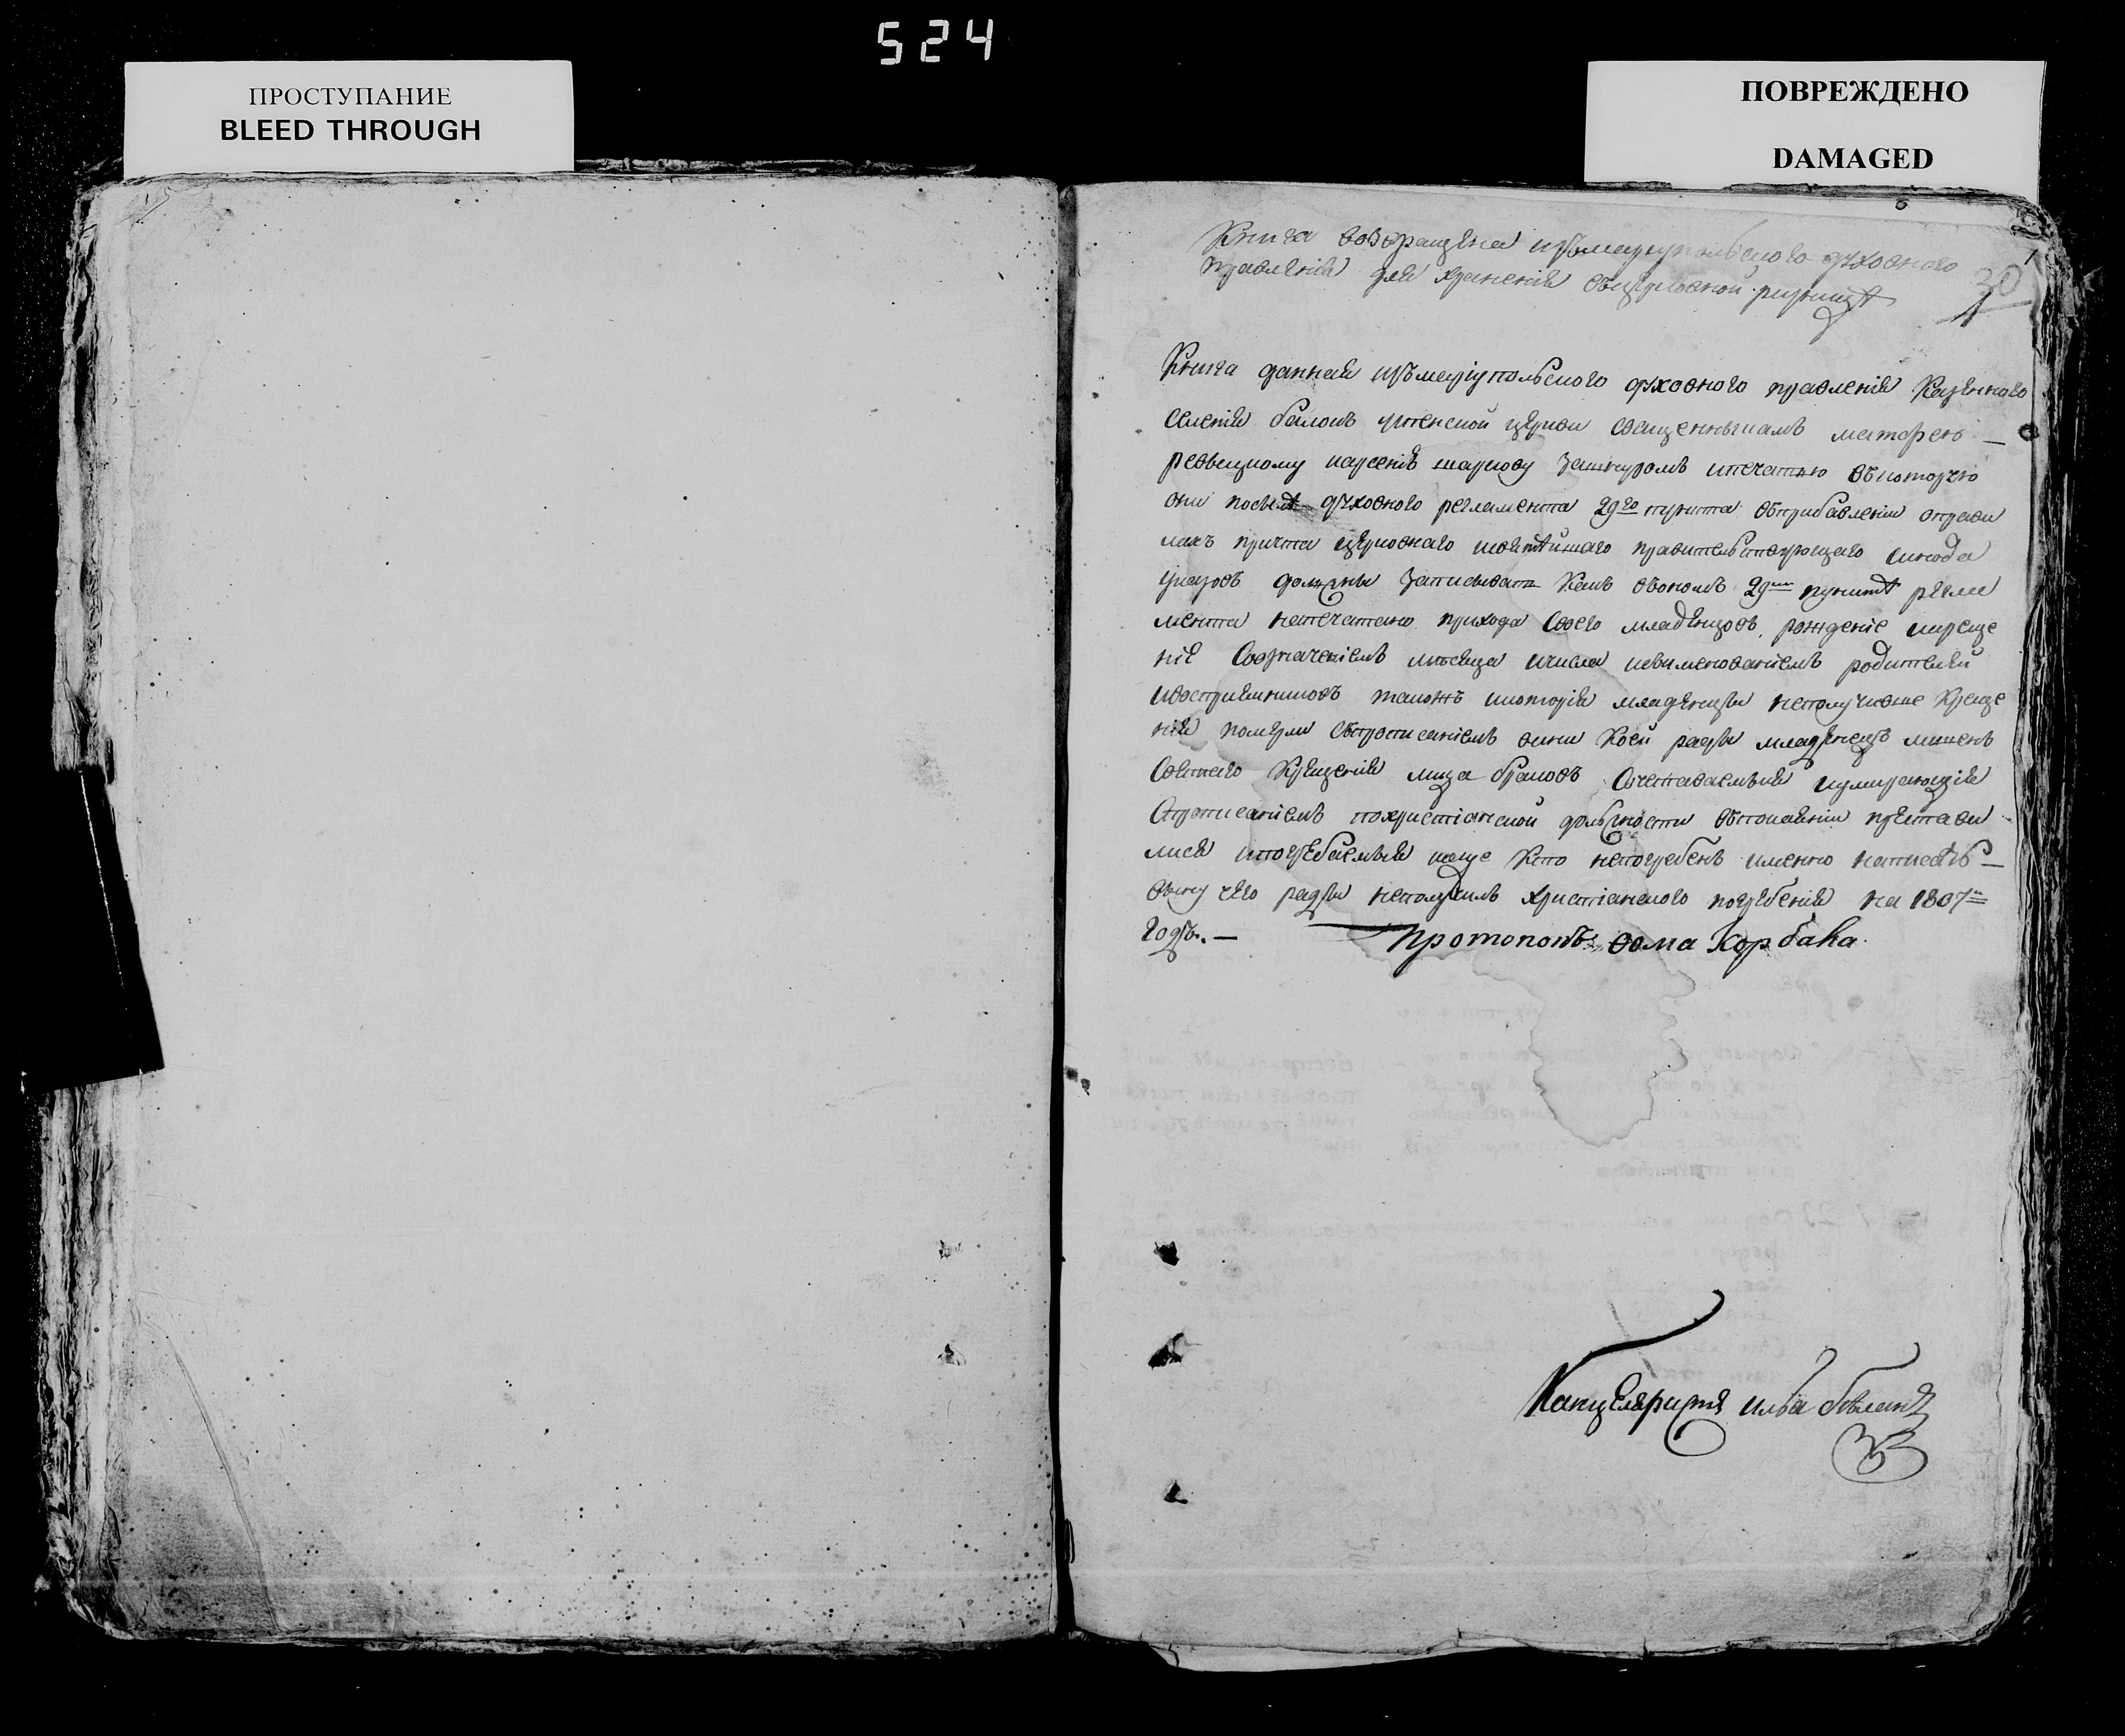 524
ПРОСТУПАНИЕ
BLEED THROUGH
ПОВРЕЖДЕНО
DAMAGED
Книга возвращена изъ мариупольского духовного
правленія для храненія въ церковной ризницѣ
1
30
Книга данная изъ маріупольского духовного правленія Казенного
селенія успенской церкви священникамъ
зашнуромъ ипечатью вькоторую
они посилѣ духовного регламента 29го пункта вьприбавленіи оправи
лахъ причта церковнаго исвятѣйшаго правительствующаго синода
указовъ должны записывать какъ вьономъ 29мъ пунктѣ регла
мента напечатано прихода своего младенцовъ, рожденіе икреще
ніе Созначеніемъ мѣсяца ичисла исьименованіемъ родителей
ивоспріемниковъ такожъ икоторіе младенцы неполучивше Креще
нія померли Сьприписаніемъ вини Коей рады младенецъ лишенъ
Святаго Крещенія лица браковъ Сочетаваемыя иумирающія
Сприписаніемъ похристіанской должности вьпокаяніи престави
лися ипогребаемыя иаще Кто непогребенъ именно написать
вину чего рады неполучилъ христіанского погребенія на 1807й
годъ. —
Протопопъ Фома Корбака.
Канцеляристъ илья